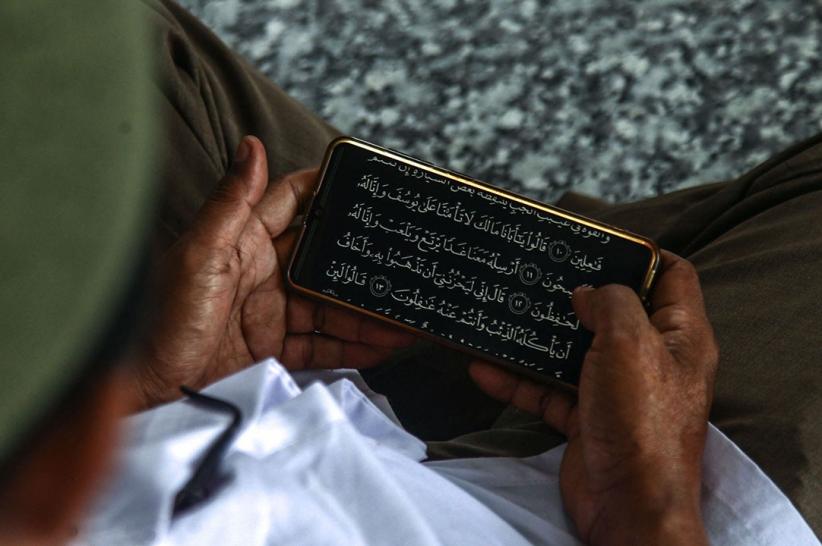 وَأَلْقُوهُ فِي غَيَٰبَتِ ٱلْجُبِّ يَلْتَقِطْهُ بَعْضُ ٱلسَّيَّارَةِ إِن كُنتُمْ
فَٰعِلِينَ ١٠ قَالُوا۟ يَٰٓأَبَانَا مَا لَكَ لَا تَأْمَ۫نَّا عَلَىٰ يُوسُفَ وَإِنَّا لَهُۥ
لَنَٰصِحُونَ ١١ أَرْسِلْهُ مَعَنَا غَدًا يَرْتَعْ وَيَلْعَبْ وَإِنَّا لَهُۥ
لَحَٰفِظُونَ ١٢ قَالَ إِنِّي لَيَحْزُنُنِيٓ أَن تَذْهَبُوا۟ بِهِۦ وَأَخَافُ
أَن يَأْكُلَهُ ٱلذِّئْبُ وَأَنتُمْ عَنْهُ غَٰفِلُونَ ١٣ قَالُوا۟ لَئِنْ